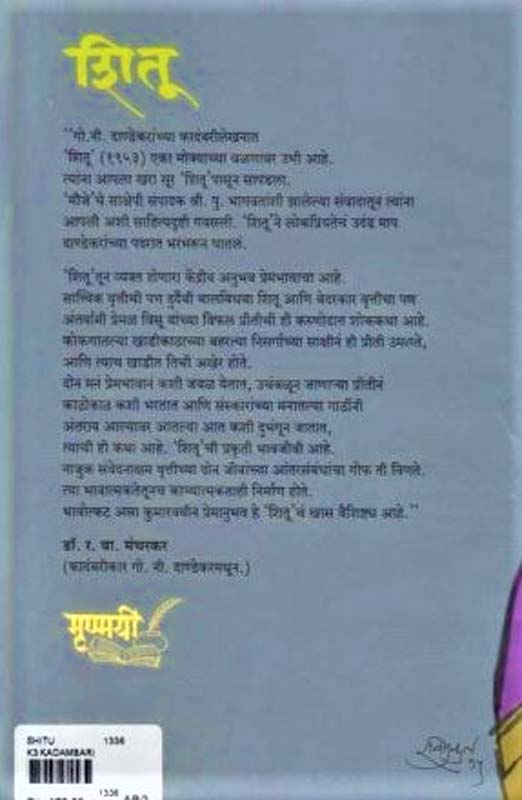 शितू
"गो.नी. दाण्डेकरांच्या कादंबरीलेखनात
'शितू' (१९५३) एका मोक्याच्या वळणावर उभी आहे.
त्यांना आपला खरा सूर 'शितू'पासून सापडला.
'मौजे'चे साक्षेपी संपादक श्री. पु. भागवतांशी झालेल्या संवादातून त्यांना
आपली अशी साहित्यदृष्टी गवसली. 'शितू'ने लोकप्रियतेचं उदंड माप
दाण्डेकरांच्या पदरात भरभरून घातलं.
'शितू'तून व्यक्त होणारा केंद्रीय अनुभव प्रेमभावाचा आहे.
सात्त्विक वृत्तीची पण दुर्दैवी बालविधवा शितू आणि बेदरकार वृत्तीचा पण
अंतर्यामी प्रेमळ विसू यांच्या विफल प्रीतीची ही करुणोदात्त शोककथा आहे.
कोकणातल्या खाडीकाठाच्या बहरत्या निसर्गाच्या साक्षीनं ही प्रीती उमलते,
आणि त्याच खाडीत तिची अखेर होते.
दोन मनं प्रेमभावानं कशी जवळ येतात, उचंबळून जाणाऱ्या प्रीतीनं
काठोकाठ कशी भरतात आणि संस्कारांच्या मनातल्या गाठींनी
अंतराय आल्यावर आतल्या आत कशी दुभंगून जातात,
त्याची ही कथा आहे. 'शितू'ची प्रकृती भावजीवी आहे.
नाजुक संवेदनाक्षम वृत्तीच्या दोन जीवांच्या आंतरसंबंधांचा गोफ ती विणते.
त्या भावात्मकतेतूनच काव्यात्मकताही निर्माण होते.
भावोत्कट असा कुमारवयीन प्रेमानुभव हे 'शितू'चं खास वैशिष्ट्य आहे."
डॉ. र. बा. मंचरकर
(कादंबरीकार गो. नी. दाण्डेकरमधून.)
मृण्मयी
SHITU 1336
K3 KADAMBARI
1336